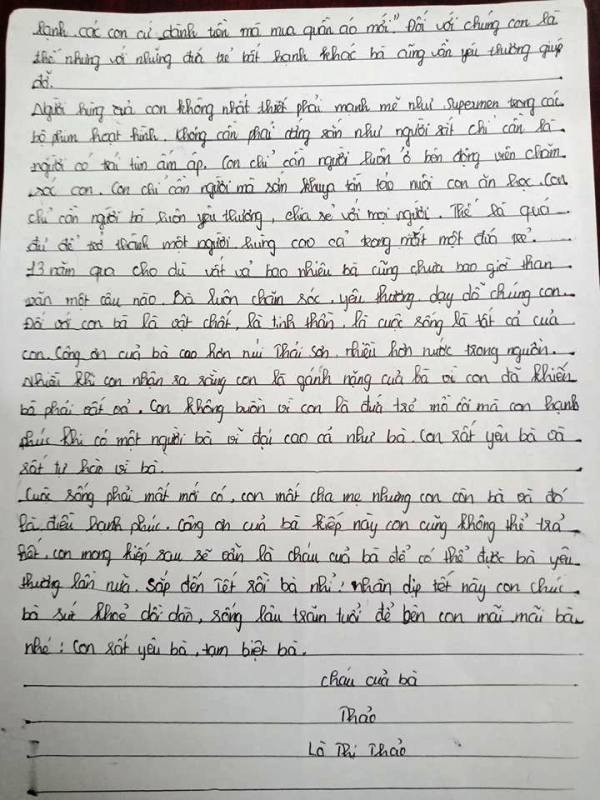 lạnh các con cứ dành tiền mà mua quần áo mới." Đối với chúng con là
thế nhưng với những đứa trẻ bất hạnh khác bà cũng vẫn yêu thương giúp
đỡ.
Người hùng của con không nhất thiết phải mạnh mẽ như supermen trong các
bộ phim hoạt hình. Không cần phải cứng rắn như người sắt chỉ cần là
người có trái tim ấm áp. Con chỉ cần người luôn ở bên động viên chăm
sóc con. Con chỉ cần người mà sẵn khuya tần tảo nuôi con ăn học. Con
chỉ cần người bà luôn yêu thương, chia sẻ với mọi người. Thế là quá
đủ để trở thành một người hùng cao cả trong mắt một đứa trẻ.
13 năm qua cho dù vất vả bao nhiêu bà cũng chưa bao giờ than
vãn một câu nào. Bà luôn chăm sóc, yêu thương, dạy dỗ chúng con.
Đối với con bà là vật chất, là tinh thần, là cuộc sống là tất cả của
con. Công ơn của bà cao hơn núi Thái Sơn, nhiều hơn nước trong nguồn.
Nhiều khi con nhận ra rằng con là gánh nặng của bà vì con đã khiến
bà phải vất vả. Con không buồn vì con là đứa trẻ mồ côi mà con hạnh
phúc khi có một người bà vĩ đại cao cả như bà. Con rất yêu bà và
rất tự hào về bà.
Cuộc sống phải mất mới có, con mất cha mẹ nhưng con còn bà và đó
là điều hạnh phúc. Công ơn của bà kiếp này con cũng không thể trả
hết, con mong kiếp sau sẽ vẫn là cháu của bà để có thể được bà yêu
thương lần nữa. Sắp đến Tết rồi bà nhỉ! nhân dịp tết này con chúc
bà sức khoẻ dồi dào, sống lâu trăm tuổi để bên con mãi mãi bà
nhé! Con rất yêu bà, tạm biệt bà.
cháu của bà
Thảo
Lò Thị Thảo